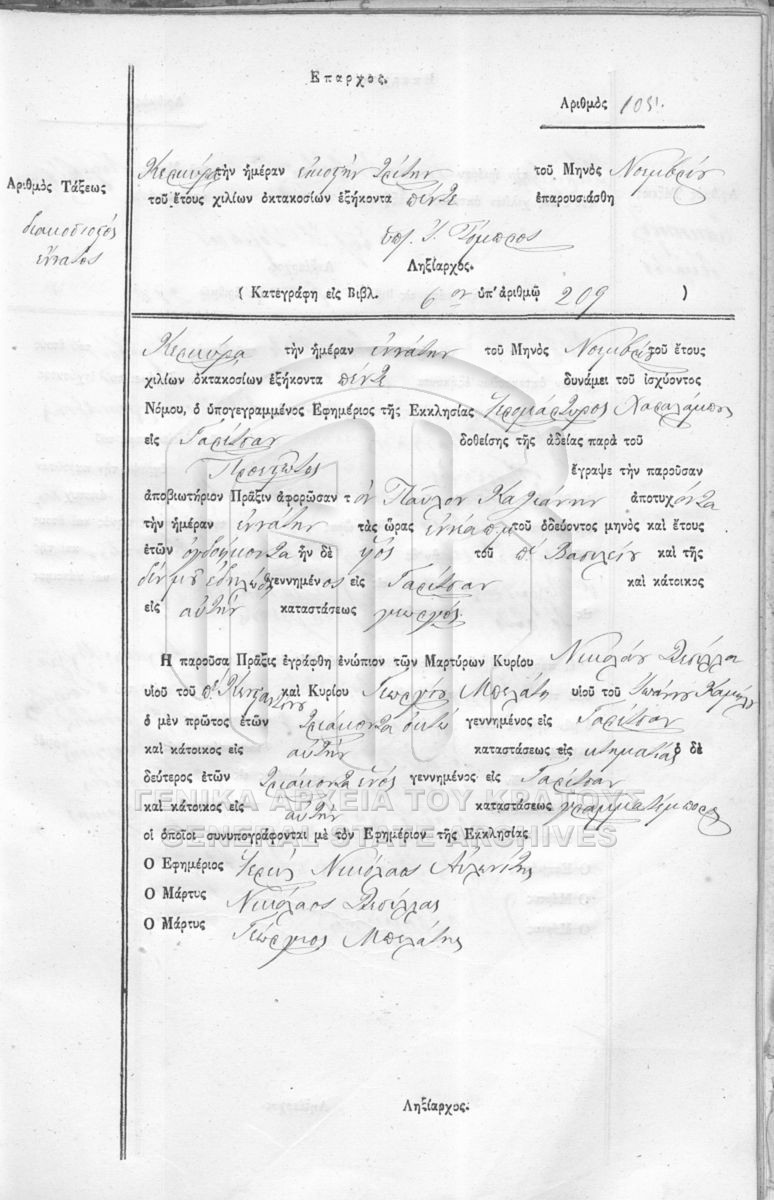 Ἔπαρχος.
Ἀριθμὸς 105
Ἀριθμὸς Τάξεως
διακοσιοστός
ἔννατος
Κερκύρα τὴν ἡμέραν εἰκοστὴν τρίτην τοῦ Μηνὸς Νοεμβρίου
τοῦ ἔτους χιλίων ὀκτακοσίων ἑξήκοντα πέντε ἐπαρουσιάσθη
Ληξίαρχος.
( Κατεγράφη εἰς Βιβλ. 6 ον ὑπ' ἀριθμῷ 209 )
Κερκύρα τὴν ἡμέραν ἐννάτην τοῦ Μηνὸς Νοεμβρίου τοῦ ἔτους
χιλίων ὀκτακοσίων ἑξήκοντα πέντε δυνάμει τοῦ ἰσχύοντος
Νόμου, ὁ ὑπογεγραμμένος Ἐφημέριος τῆς Ἐκκλησίας Ἱερομάρτυρος Χαραλάμπους
εἰς Γαρίτσαν δοθείσης τῆς ἀδείας παρὰ τοῦ
ἔγραψε τὴν παροῦσαν
ἀποβιωτήριον Πρᾶξιν ἀφορῶσαν τ ὸν Παῦλον Καλιάνην ἀποτυχόντα
τὴν ἡμέραν ἐννάτην τὰς ὥρας ἐννέα π.μ. τοῦ ὁδεύοντος μηνὸς καὶ ἔτους
ἐτῶν ὀγδοήκοντα ἦν δὲ υἱὸς τοῦ π. Βασιλείου καὶ τῆς
δὲν μ' ἐδηλώθη γεννημένος εἰς Γαρίτσαν καὶ κάτοικος
εἰς αὐτὴν καταστάσεως γεωργός
Ἡ παροῦσα Πρᾶξις ἐγράφθη ἐνώπιον τῶν Μαρτύρων Κυρίου Νικολάου
υἱοῦ τοῦ π. καὶ Κυρίου Γεωργίου Μπελάτη υἱοῦ τοῦ Ἰωάννου
ὁ μὲν πρῶτος ἐτῶν τριάκοντα ὀκτὼ γεννημένος εἰς Γαρίτσαν
καὶ κάτοικος εἰς αὐτὴν καταστάσεως εἰς κτηματίας ὁ δὲ
δεύτερος ἐτῶν τριάκοντα ἑνὸς γεννημένος εἰς Γαρίτσαν
καὶ κάτοικος εἰς αὐτὴν καταστάσεως
οἱ ὁποῖοι συνυπογράφονται μὲ τὸν Ἐφημέριον τῆς Ἐκκλησίας
Ὁ Ἐφημέριος Ἱερεὺς Νικόλαος
Ὁ Μάρτυς Νικόλαος
Ὁ Μάρτυς Γεώργιος Μπελάτης
Ληξίαρχος.
ΓΕΝΙΚΑ ΑΡΧΕΙΑ ΤΟΥ ΚΡΑΤΟΥΣ
GENERAL STATE ARCHIVES